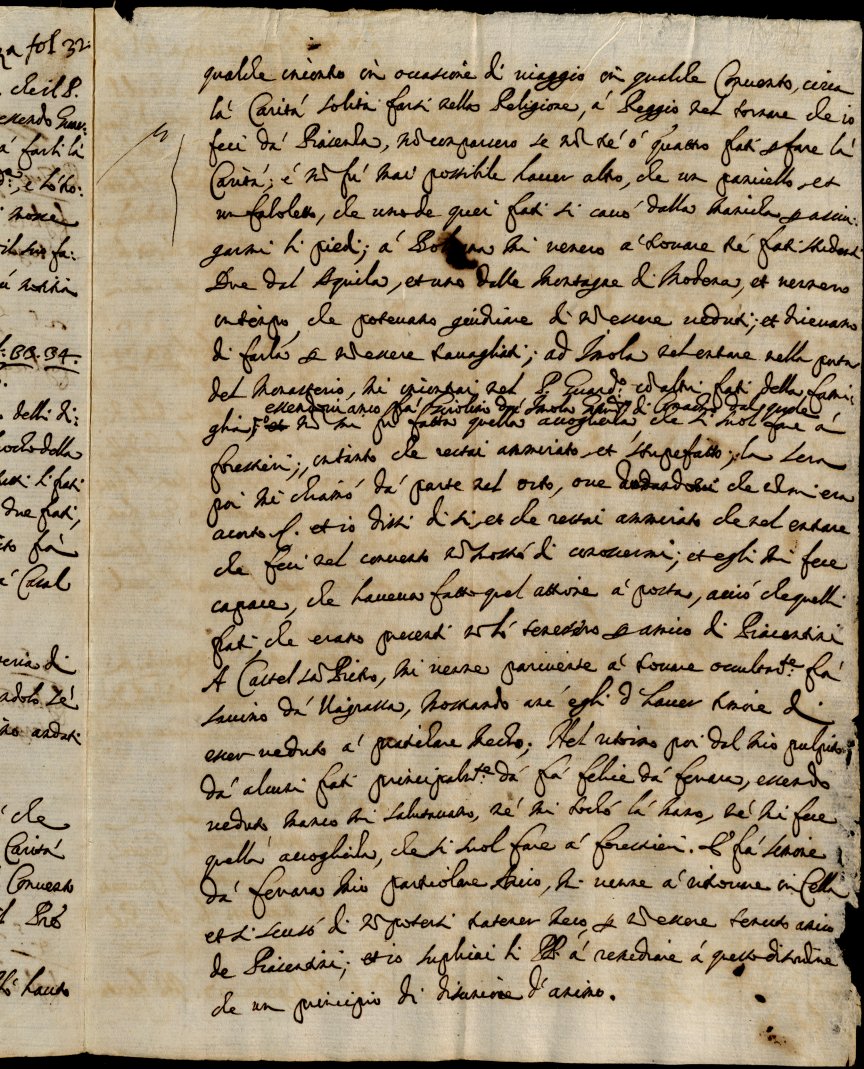 za fol 32.
che il P.
essendo Guar:
a' farli la
i
il suo fa:
33. 34.
delli di:
della
li frati
due frati,
frà
teria di
andati
che
Carità
Convento
qualche incontro in occasione di viaggio in qualche Convento, circa
la' Carità solita farsi nella Religione, a' Reggio nel tornare che io
feci da' Piacenza, nõ comparsero se nõ trè ò quattro frati p fare la'
Carità; è nõ fù mai possibile haver altro, che un panicello, et
un fazoletto, che uno de quei frati si cavò dalla manica p asciu:
garmi li piedi; a' Bologna mi venero a' trovare trè frati studenti
Due dal Aquila, et uno dalle Montagne di Modena, et vennero
in tempo, che potevano giudicare di nõ essere veduti; et dicevano
di farla p nõ essere travagliati; ad Imola nel entrare nella porta
del Monasterio, mi incontrai nel P. Guard.º cõ altri frati della fami:
essendovi anco frà da Imola
glia, nõ mi fù fatta quella accoglienza che si suol fare a'
forestieri; intanto che restai ammirato, et stupefatto; la sera
poi mi chiamò da' parte nel orto, ove che mi era
acorto et io dissi di si, et che restai ammirato che nel entrare
che feci nel convento nõ mostrò di conoscermi; et egli mi fece
capace, che haveva fatto quel attione a' posta, acciò che quelli
frati che erano presenti nõ lo tenessero p amico di Piacentini
A Castel Sã Pietro, mi venne parimente a' trovare occultam.te frà
Savino da' mostrando anc' egli d' haver timore di
esser veduto a' pratticare meco; Nel ritorno poi dal mio pulpito,
da' alcuni frati principalm.te da' frà Felice da' Ferrara, essendo
veduto manco mi salutavano, nè mi toccò la' mano, nè mi fece
quella' accoglienza, che si suol fare a' forestieri. Et frà Simone
da' Ferrara mio particolare Amico, mi venne a' ritrovare in Cella
et si scusò di nõ potersi tratener meco, p nõ essere tenuto amico
de Piacentini; et io suplicai li PP. a' remediare a' questo disordine
che un principio di disunione d' animo.